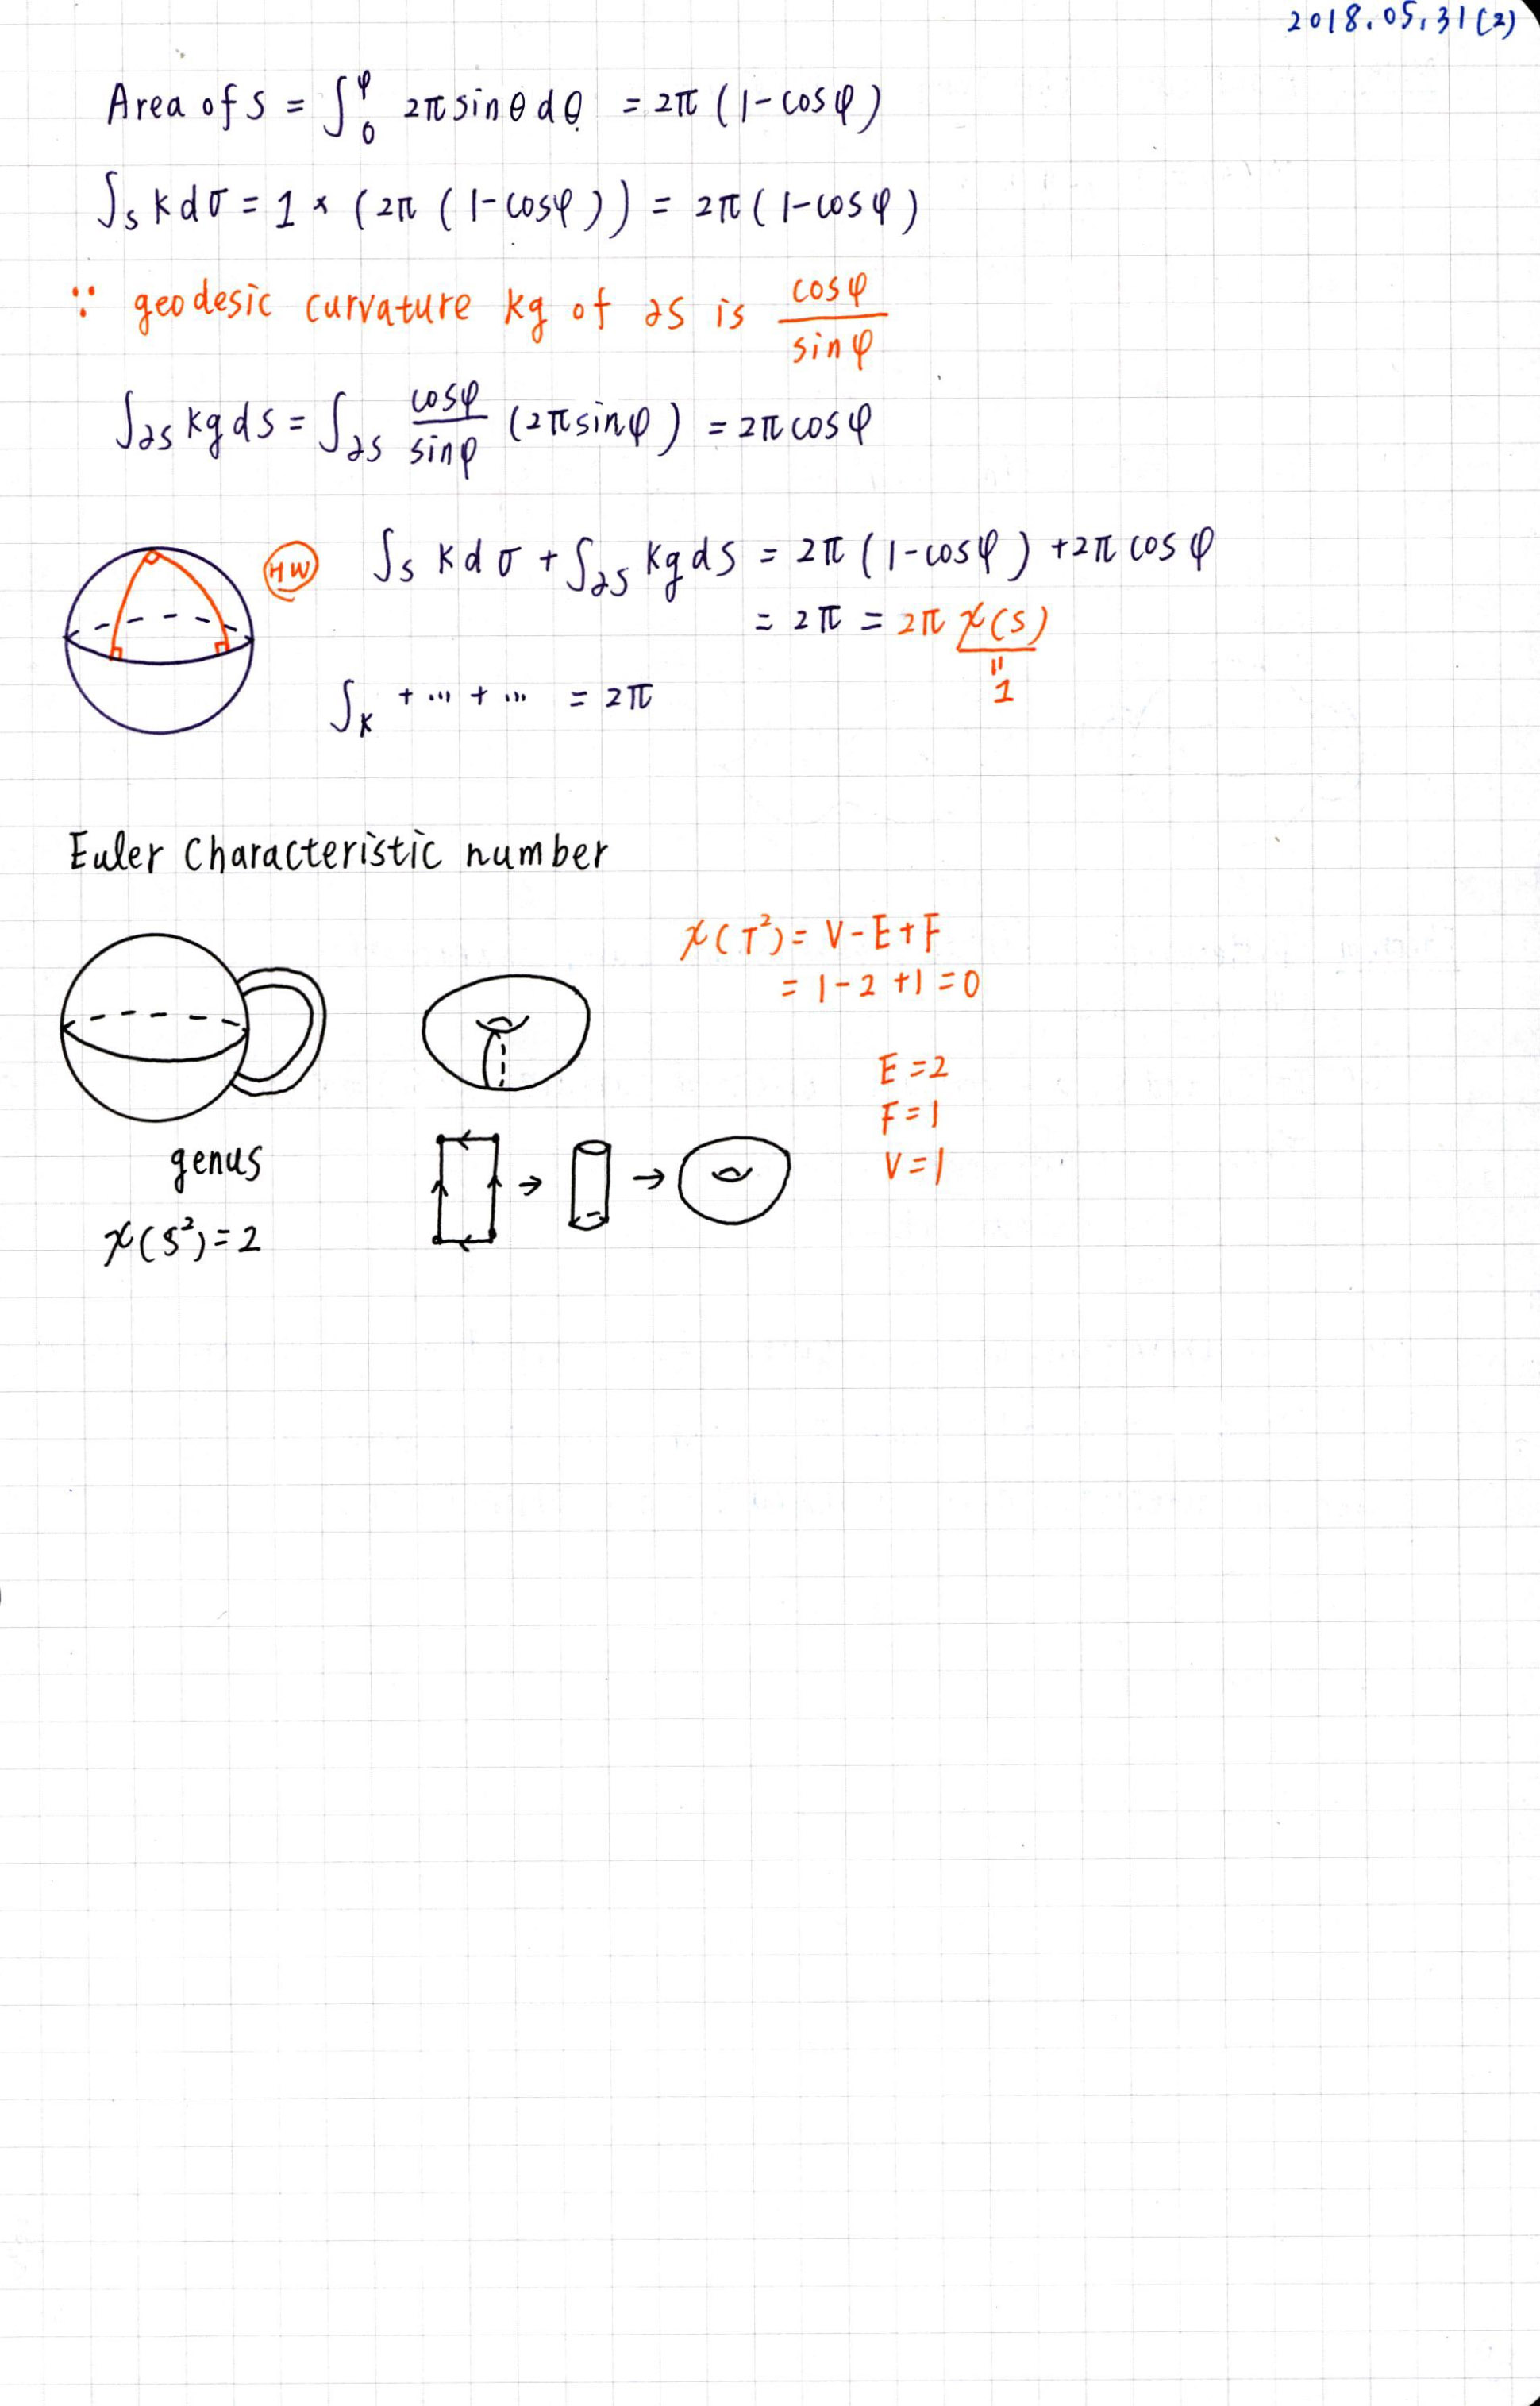 2018.05.31(2)
Area of S = ∫₀^φ 2π sinθ dθ = 2π (1-cosφ)
∫_S K dσ = 1 × (2π (1-cosφ)) = 2π (1-cosφ)
∵ geodesic curvature kg of ∂S is cosφ/sinφ
∫_∂S kg ds = ∫_∂S cosφ/sinφ (2π sinφ) = 2π cosφ
HW
∫_S K dσ + ∫_∂S kg ds = 2π (1-cosφ) + 2π cosφ
= 2π = 2π χ(S)
"
1
∫_K + ... + ... = 2π
Euler Characteristic number
χ(T²) = V-E+F
= 1-2+1=0
E=2
F=1
V=1
genus
χ(S²)=2
→ →